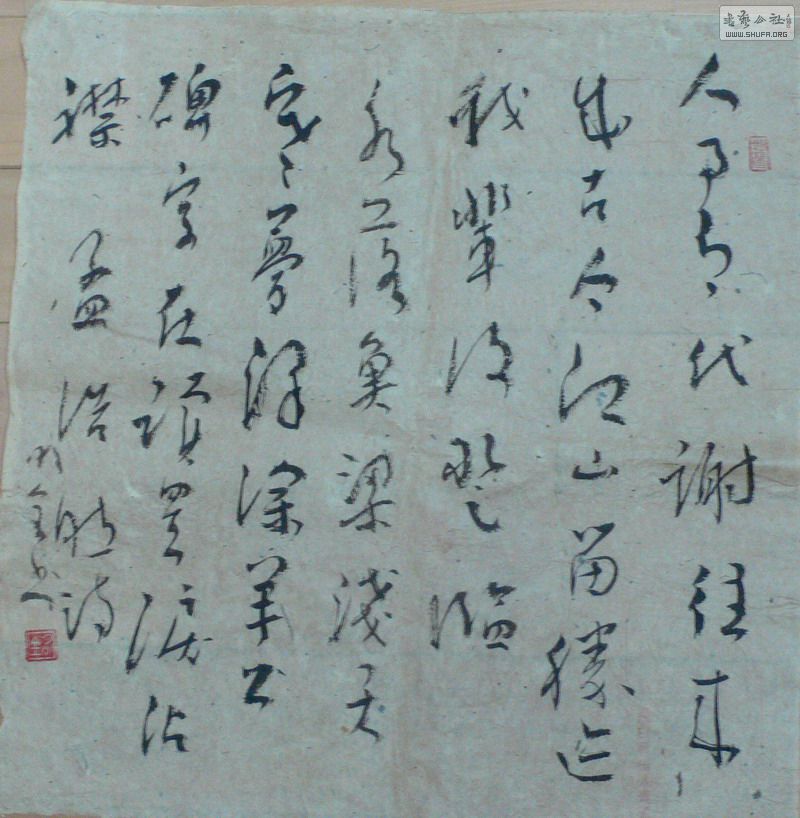 人事有代謝往来
成古今江山留勝迹
我輩復登臨
水落魚梁淺天
寒夢澤深羊公
碑字在讀罷淚沾
襟 孟浩然詩
書藝公社
WWW.SHUFA.ORG